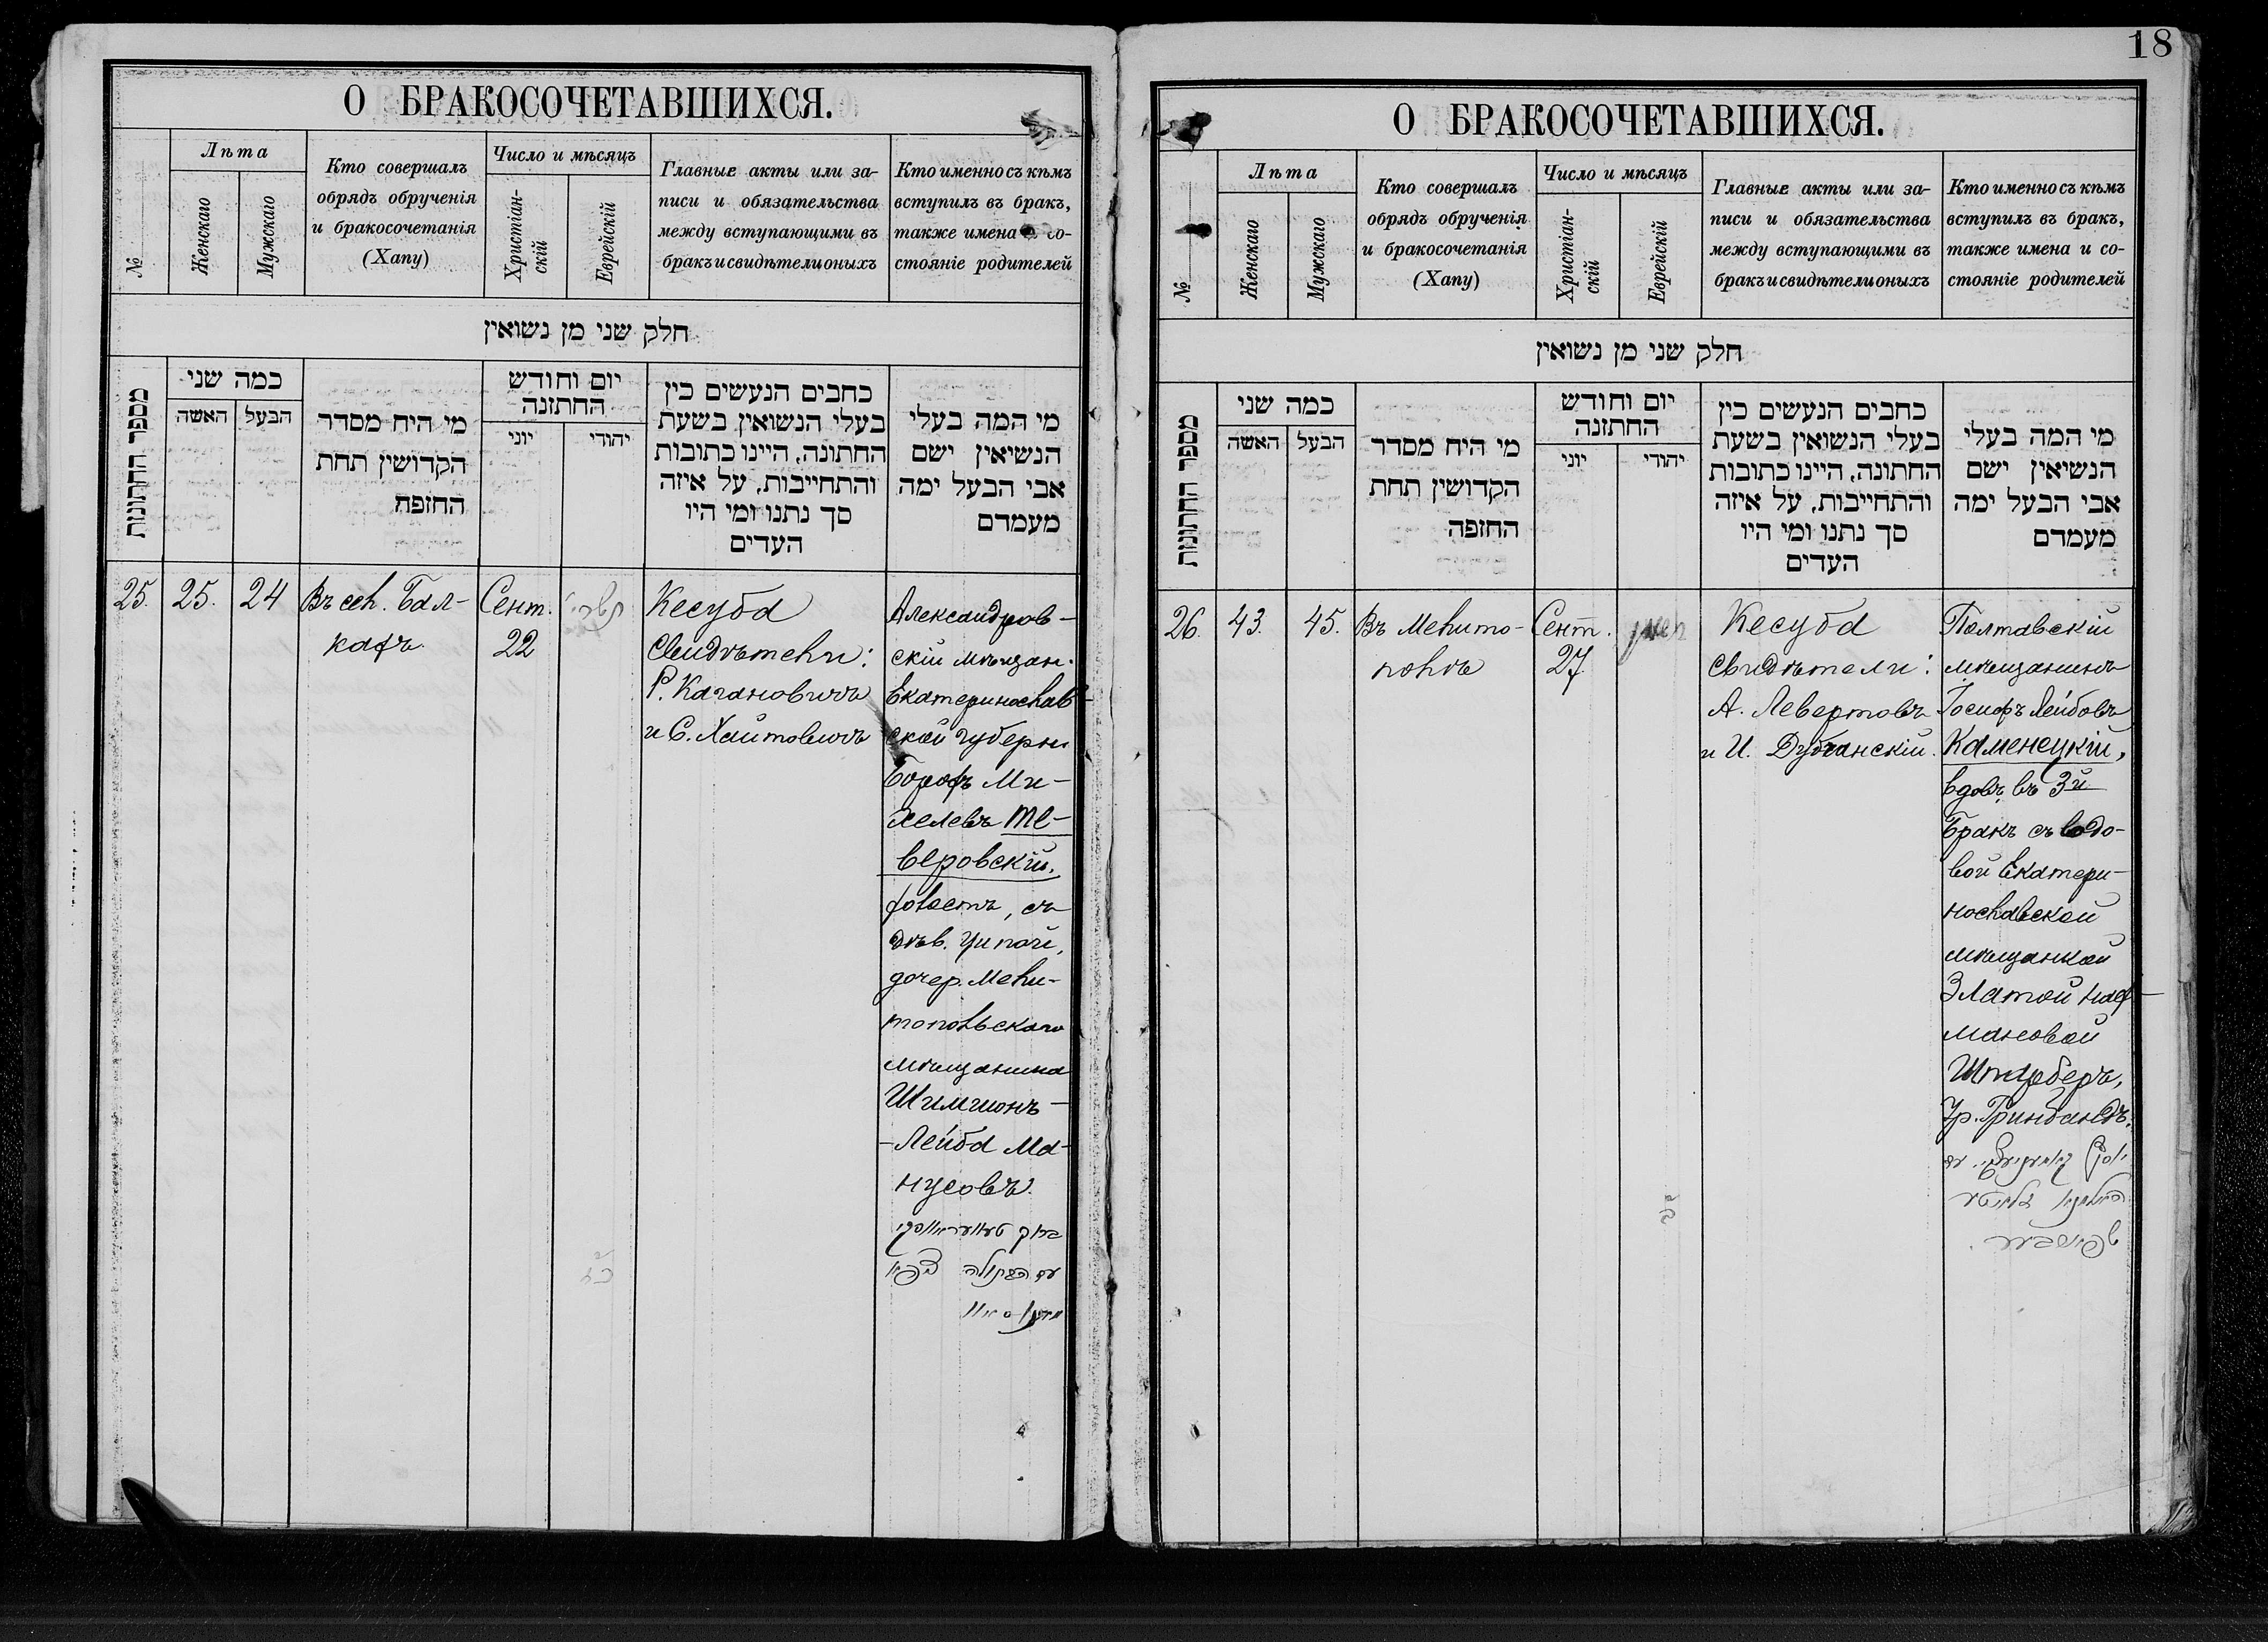 18
О БРАКОСОЧЕТАВШИХСЯ.
№
Лѣта
Женскаго
Мужскаго
Кто совершалъ
обрядъ обрученія
и бракосочетанія
(Хапу)
Число и мѣсяцъ
Христіан-
скій
Еврейскій
Главные акты или за-
писи и обязательства
между вступающими въ
бракъ и свидѣтели оныхъ
Кто именно съ кѣмъ
вступилъ въ бракъ,
также имена со-
стояніе родителей
חלק שני מן נשואין
מספר החתונות
כמה שני
האשה
הבעל
מי היח מסדר
הקדושין תחת
החופה
יום וחודש
החתונה
יוני
יהודי
כחבים הנעשים כין
בעלי הנשואין בשעת
החתונה, היינו כתובות
והתחייבות, על איזה
סך נתנו ומי היו
העדים
מי המה בעלי
הנשיאין ישם
אבי הבעל ימה
מעמדם
25.
25.
24
Въ сел. Бал-
ках
Сент.
22
תשרי
כ"ג
Кесуба
Свидѣтели:
Р. Кагановичъ
и С. Хаитовичъ
Александров-
скій мѣщан.
Екатеринослав-
ской губерн.
Борохъ Ми-
хелевъ Те-
веровскій,
холостъ, съ
дѣв. Ципой,
дочер. Мели-
топольскаго
мѣщанина
Шимшонъ-
-Лейба Ма-
нусовъ.
О БРАКОСОЧЕТАВШИХСЯ.
№
Лѣта
Женскаго
Мужскаго
Кто совершалъ
обрядъ обрученія
и бракосочетанія
(Хапу)
Число и мѣсяцъ
Христіан-
скій
Еврейскій
Главные акты или за-
писи и обязательства
между вступающими въ
бракъ и свидѣтели оныхъ
Кто именно съ кѣмъ
вступилъ въ бракъ,
также имена и со-
стояніе родителей
חלק שני מן נשואין
מספר החתונות
כמה שני
האשה
הבעל
מי היח מסדר
הקדושין תחת
החופה
יום וחודש
החתונה
יוני
יהודי
כחבים הנעשים כין
בעלי הנשואין בשעת
החתונה, היינו כתובות
והתחייבות, על איזה
סך נתנו ומי היו
העדים
מי המה בעלי
הנשיאין ישם
אבי הבעל ימה
מעמדם
26.
43.
45.
Въ Мелито-
полѣ
Сент.
27
Кесуба
Свидѣтели:
А. Левертовъ
и И. Дубчанскій.
Полтавскій
мѣщанинъ
Іосифъ Лейбовъ
Каменецкій,
вдов., въ 3й
бракъ съ вдо-
вой Екатери-
нославской
мѣщанкой
Златой Нах-
мановой
Шпарберъ,
Ур. Гринбандъ.